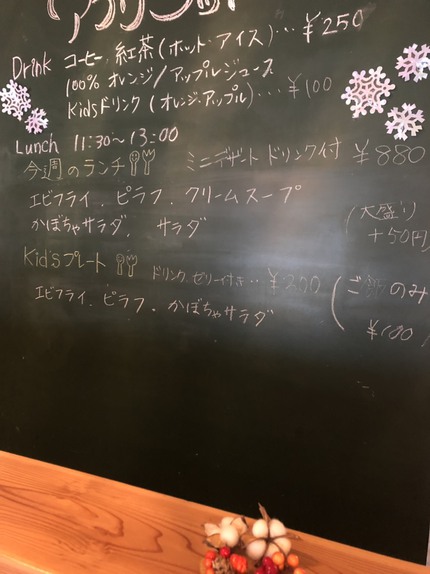 Drink コーヒー、紅茶(ホット・アイス)…¥250
100% オレンジ/アップルジュース
Kidsドリンク(オレンジ・アップル)…¥100
Lunch 11:30〜13:00
今週のランチ ミニデザート ドリンク付 ¥880
エビフライ、ピラフ、クリームスープ
かぼちゃサラダ、サラダ
(大盛り
+50円)
Kid'sプレート ドリンク、ゼリー付き…¥200
エビフライ、ピラフ、かぼちゃサラダ
(ご飯のみ
¥100)